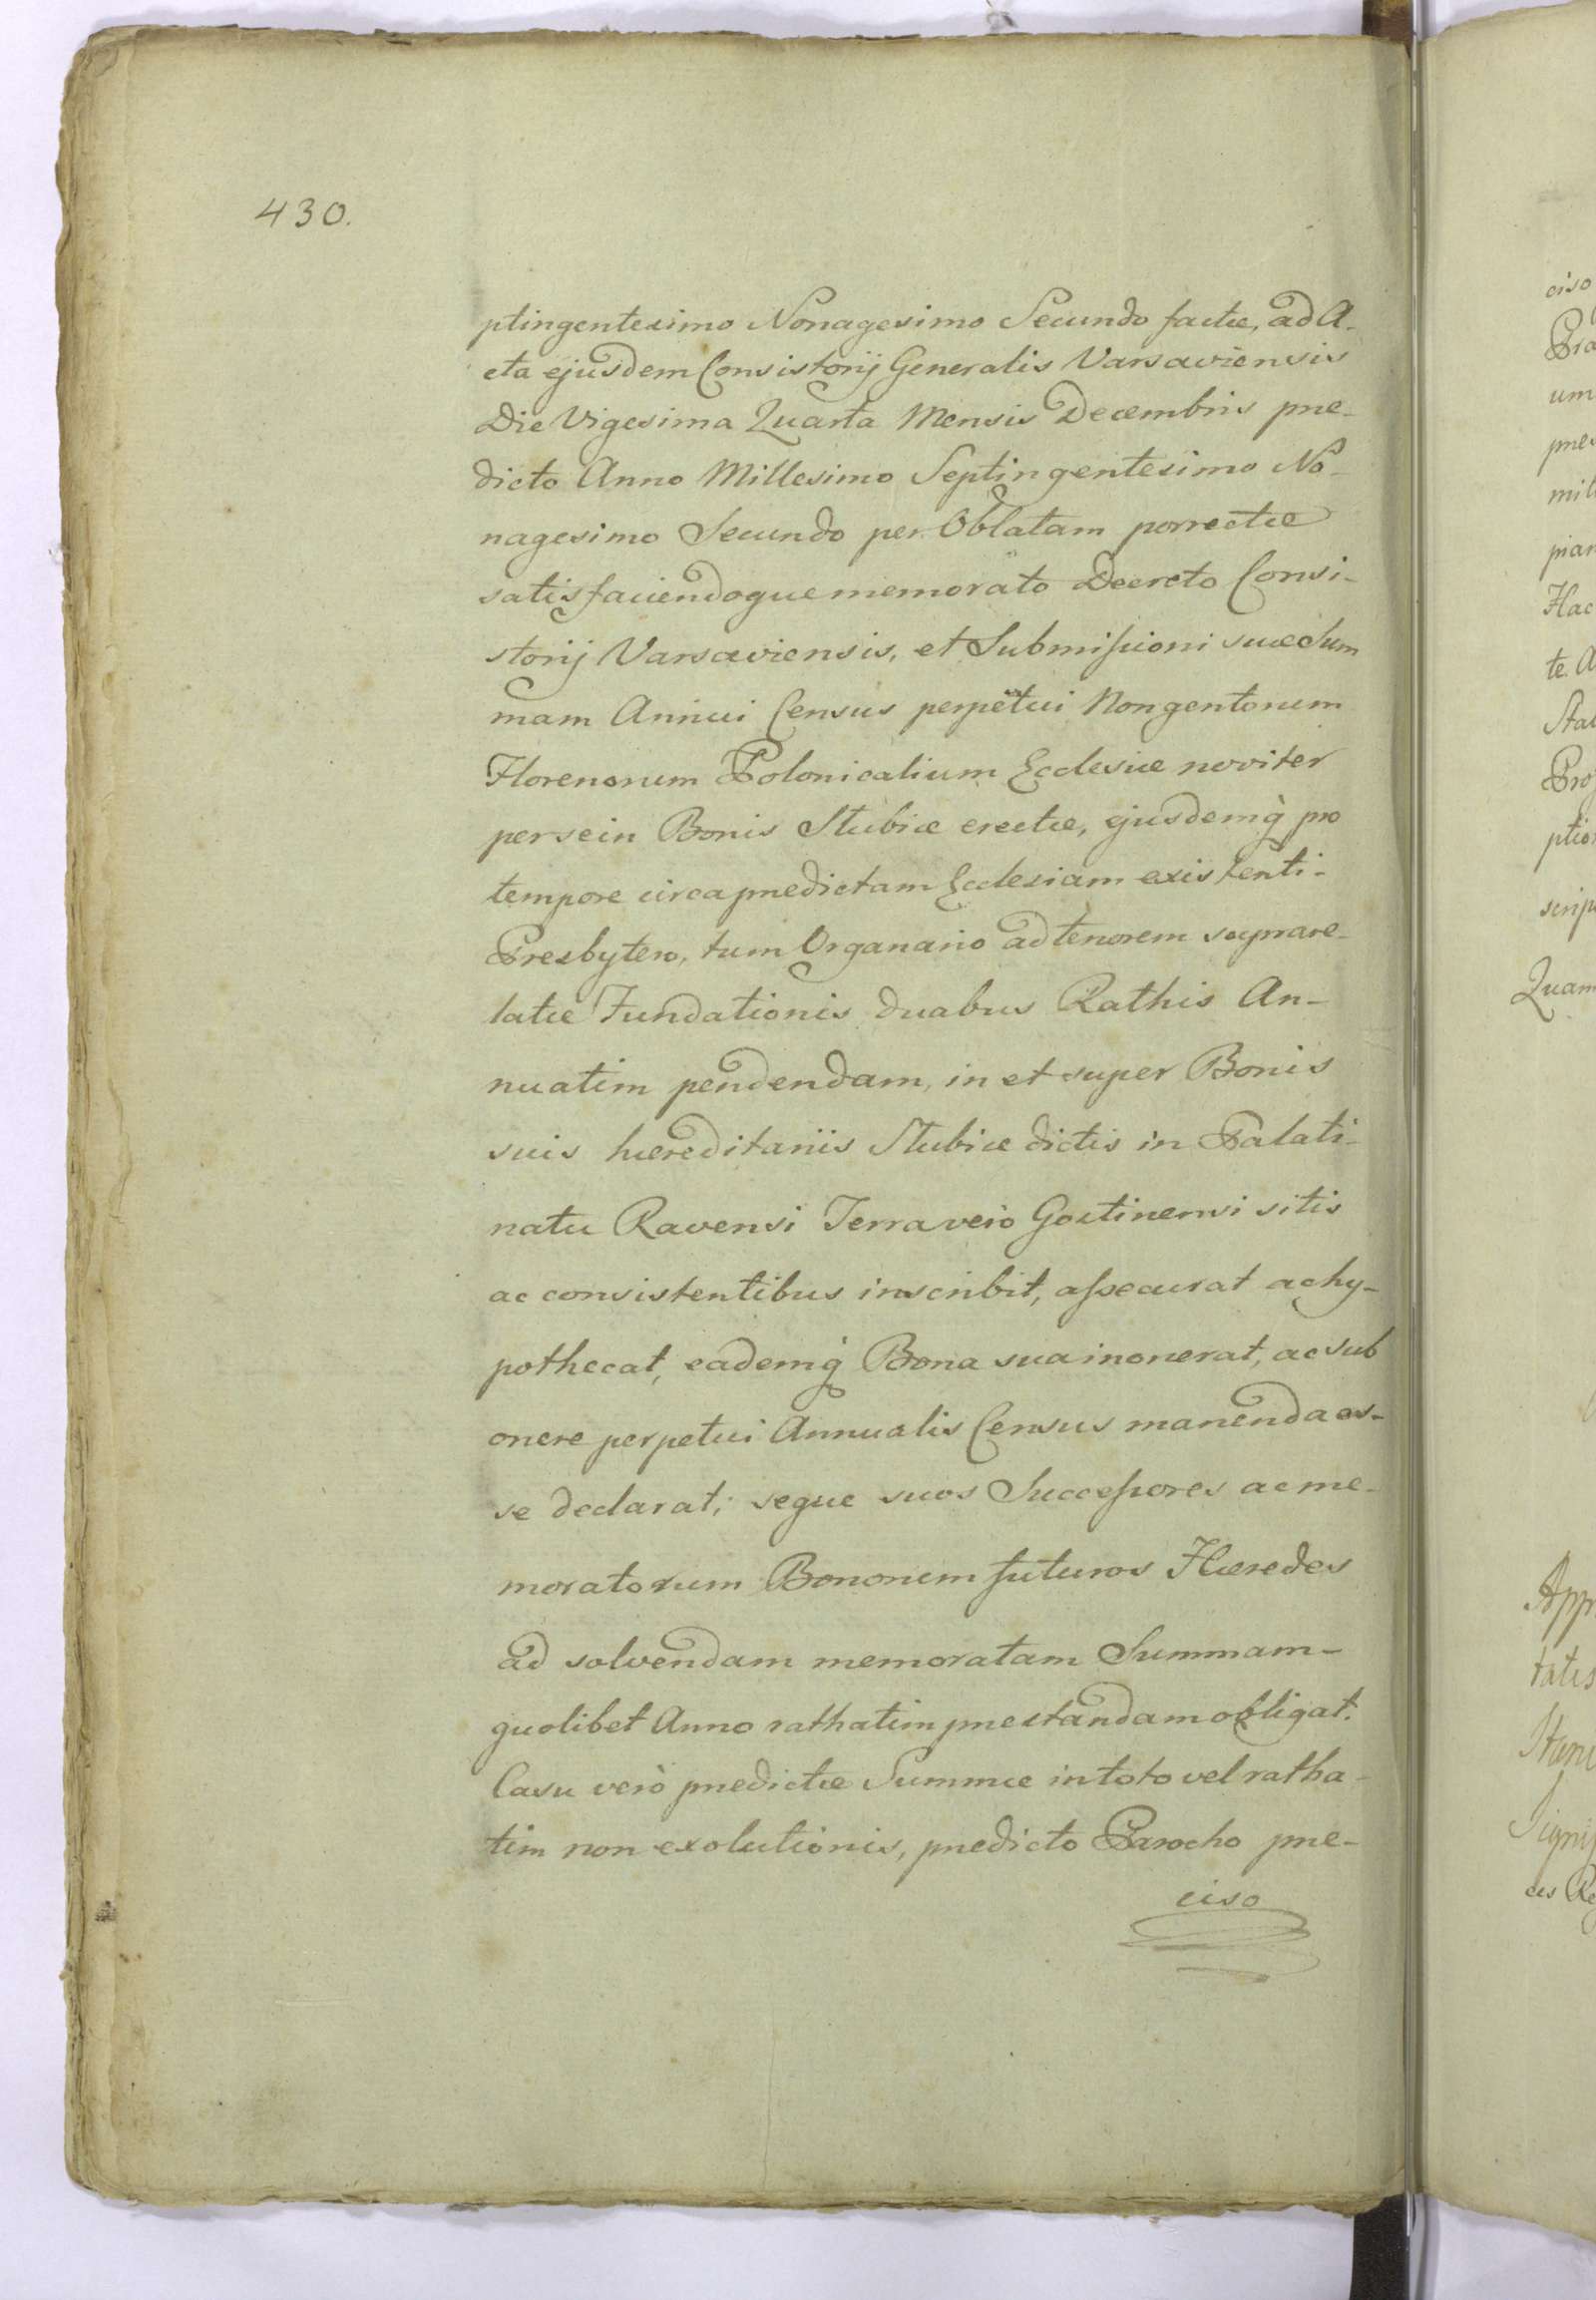 430.
ptingentesimo Nonagesimo Secundo factæ, ad A-
cta ejusdem Consistorij Generalis Varsaviensis
Die Vigesima Quarta Mensis Decembris præ-
dicto Anno Millesimo Septingentesimo No-
nagesimo Secundo per Oblatam porrectæ
satisfaciendoque memorato Decreto Consi-
storij Varsaviensis, et Submiſsioni suæ Sum
mam Annui Census perpetui Nongentorum
Florenorum Polonicalium Ecclesiæ noviter
per se in Bonis Słubice erectæ, ejusdemq̀ pro
tempore circa prædictam Ecclesiam existenti-
Presbytero, tum Organario ad tenorem suprare-
latæ Fundationis duabus Rathis An-
nuatim pendendam, in et super Bonis
suis hæreditariis Słubice dictis in Palati-
natu Ravensi Terra verò Gostinensi sitis
ac consistentibus inscribit, aſsecurat ac hy-
pothecat, eademq̀ Bona sua inonerat, ac sub
onere perpetui Annualis Census manenda es-
se declarat; seque suos Succeſsores ac me-
moratorum Bonorum futuros Hæredes
ad solvendam memoratam Summam-
quolibet Anno rathatim præstandam obligat.
Casu verò prædictæ Summæ in toto vel ratha-
tim non exolutionis, prædicto Parocho præ-
ciso
ciso
Præ
um
præ
mit
pian
Hac
te. A
Stat
Pro
ptio
scrip
Quam
App
tatis
ces Re